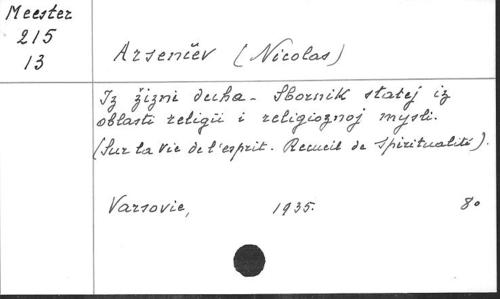 Meester
215
13
Arseničev (Nicolas)
Iz žizni ducha. Sbornik statej iz
oblasti religii i religioznoj mysli.
(Sur la vie de l'esprit. Recueil de Spiritualité).
Varsovie, 1935. 8º